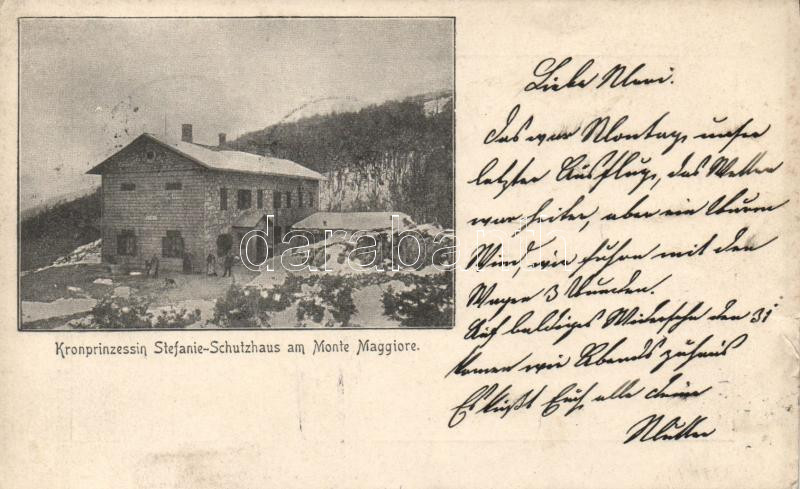 Kronprinzessin Stefanie-Schutzhaus am Monte Maggiore.
darabanth
Liebe
Das war Montag, unser
letzter Ausflug, das Wetter
war heiter, aber ein
Wind, wir fuhren mit dem
Wagen 3 Stunden.
Auf baldiges Wiedersehn den 31
komen wir Abends zuhaus
Es küßt Euch alle deine
Mutter